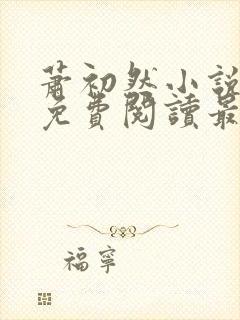 蕭初然小說
免費閱讀最
福寧